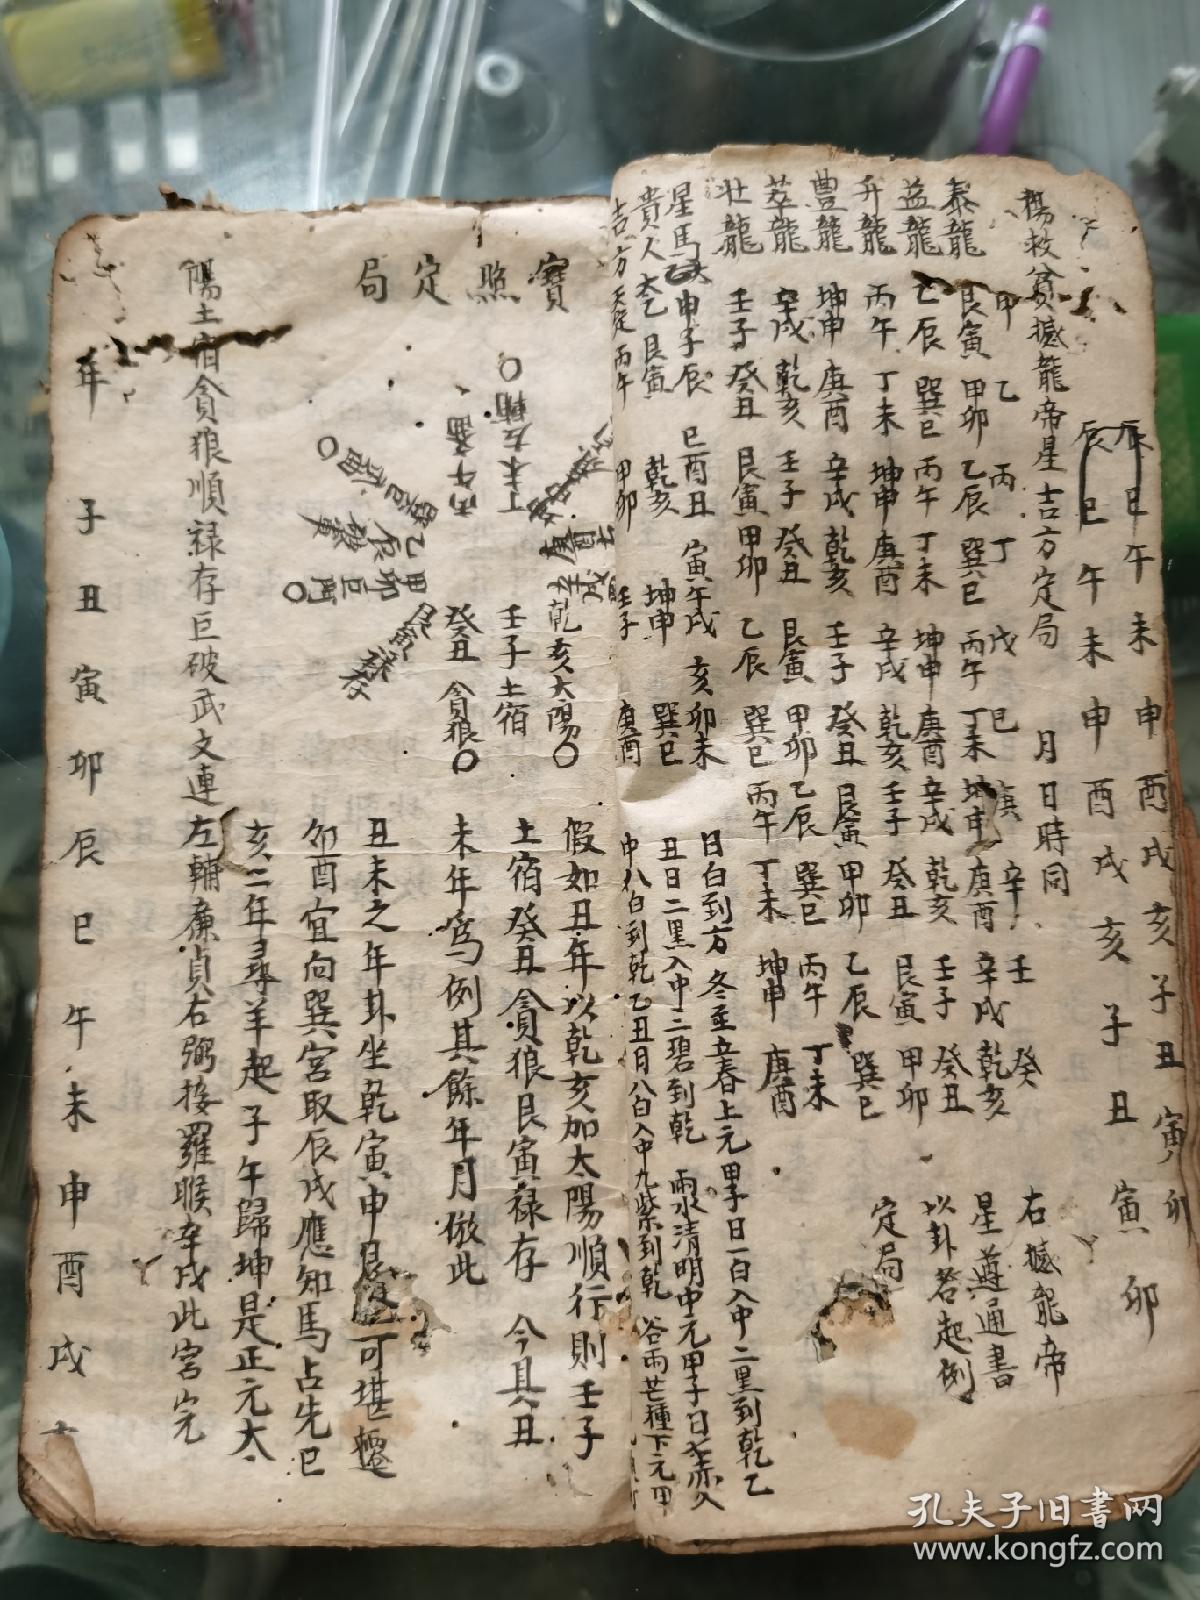 辰巳午未申酉戌亥子丑寅卯
辰巳午未申酉戌亥子丑寅卯
楊救貧撼龍帝星吉方定局 月日時同
甲乙丙丁戊己庚辛壬癸
泰龍 艮寅 甲卯 乙辰 巽巳 丙午 丁未 坤申 庚酉 辛戌 乾亥
益龍 乙辰 巽巳 丙午 丁未 坤申 庚酉 辛戌 乾亥 壬子 癸丑
升龍 丙午 丁未 坤申 庚酉 辛戌 乾亥 壬子 癸丑 艮寅 甲卯
豊龍 坤申 庚酉 辛戌 乾亥 壬子 癸丑 艮寅 甲卯 乙辰 巽巳
萃龍 辛戌 乾亥 壬子 癸丑 艮寅 甲卯 乙辰 巽巳 丙午 丁未
壮龍 壬子 癸丑 艮寅 甲卯 乙辰 巽巳 丙午 丁未 坤申 庚酉
右撼龍帝
星遵通書
以卦答起例
定局
星馬 申子辰 巳酉丑 寅午戌 亥卯未
貴人 太乙 艮寅 乾亥 坤申 巽巳
吉方 丙午 甲卯 壬子 庚酉
日白到方 冬至立春上元甲子日一白入中二黑到乾乙
丑日二黑入中三碧到乾 雨水清明中元甲子日七赤入
中八白到乾乙丑日八白入中九紫到乾 谷雨芒種下元甲
寶照定局
乾亥太陽
壬子土宿
癸丑 貪狼
艮寅祿存
甲卯巨門
乙辰破軍
巽巳武曲
丙午
丁未左輔
假如丑年以乾亥加太陽順行則壬子
土宿癸丑貪狼艮寅祿存 今具丑
未年爲例其餘年月倣此
丑未之年卦坐乾寅申艮 可堪遷
卯酉宜向巽宮取辰戌應知馬占先巳
亥二年尋羊起子午歸坤是正元大
陽土宿貪狼順祿存巨破武文連左輔廉貞右弼接羅睺辛戌此宮完
年 子丑寅卯辰巳午未申酉戌
孔夫子旧書网
www.kongfz.com